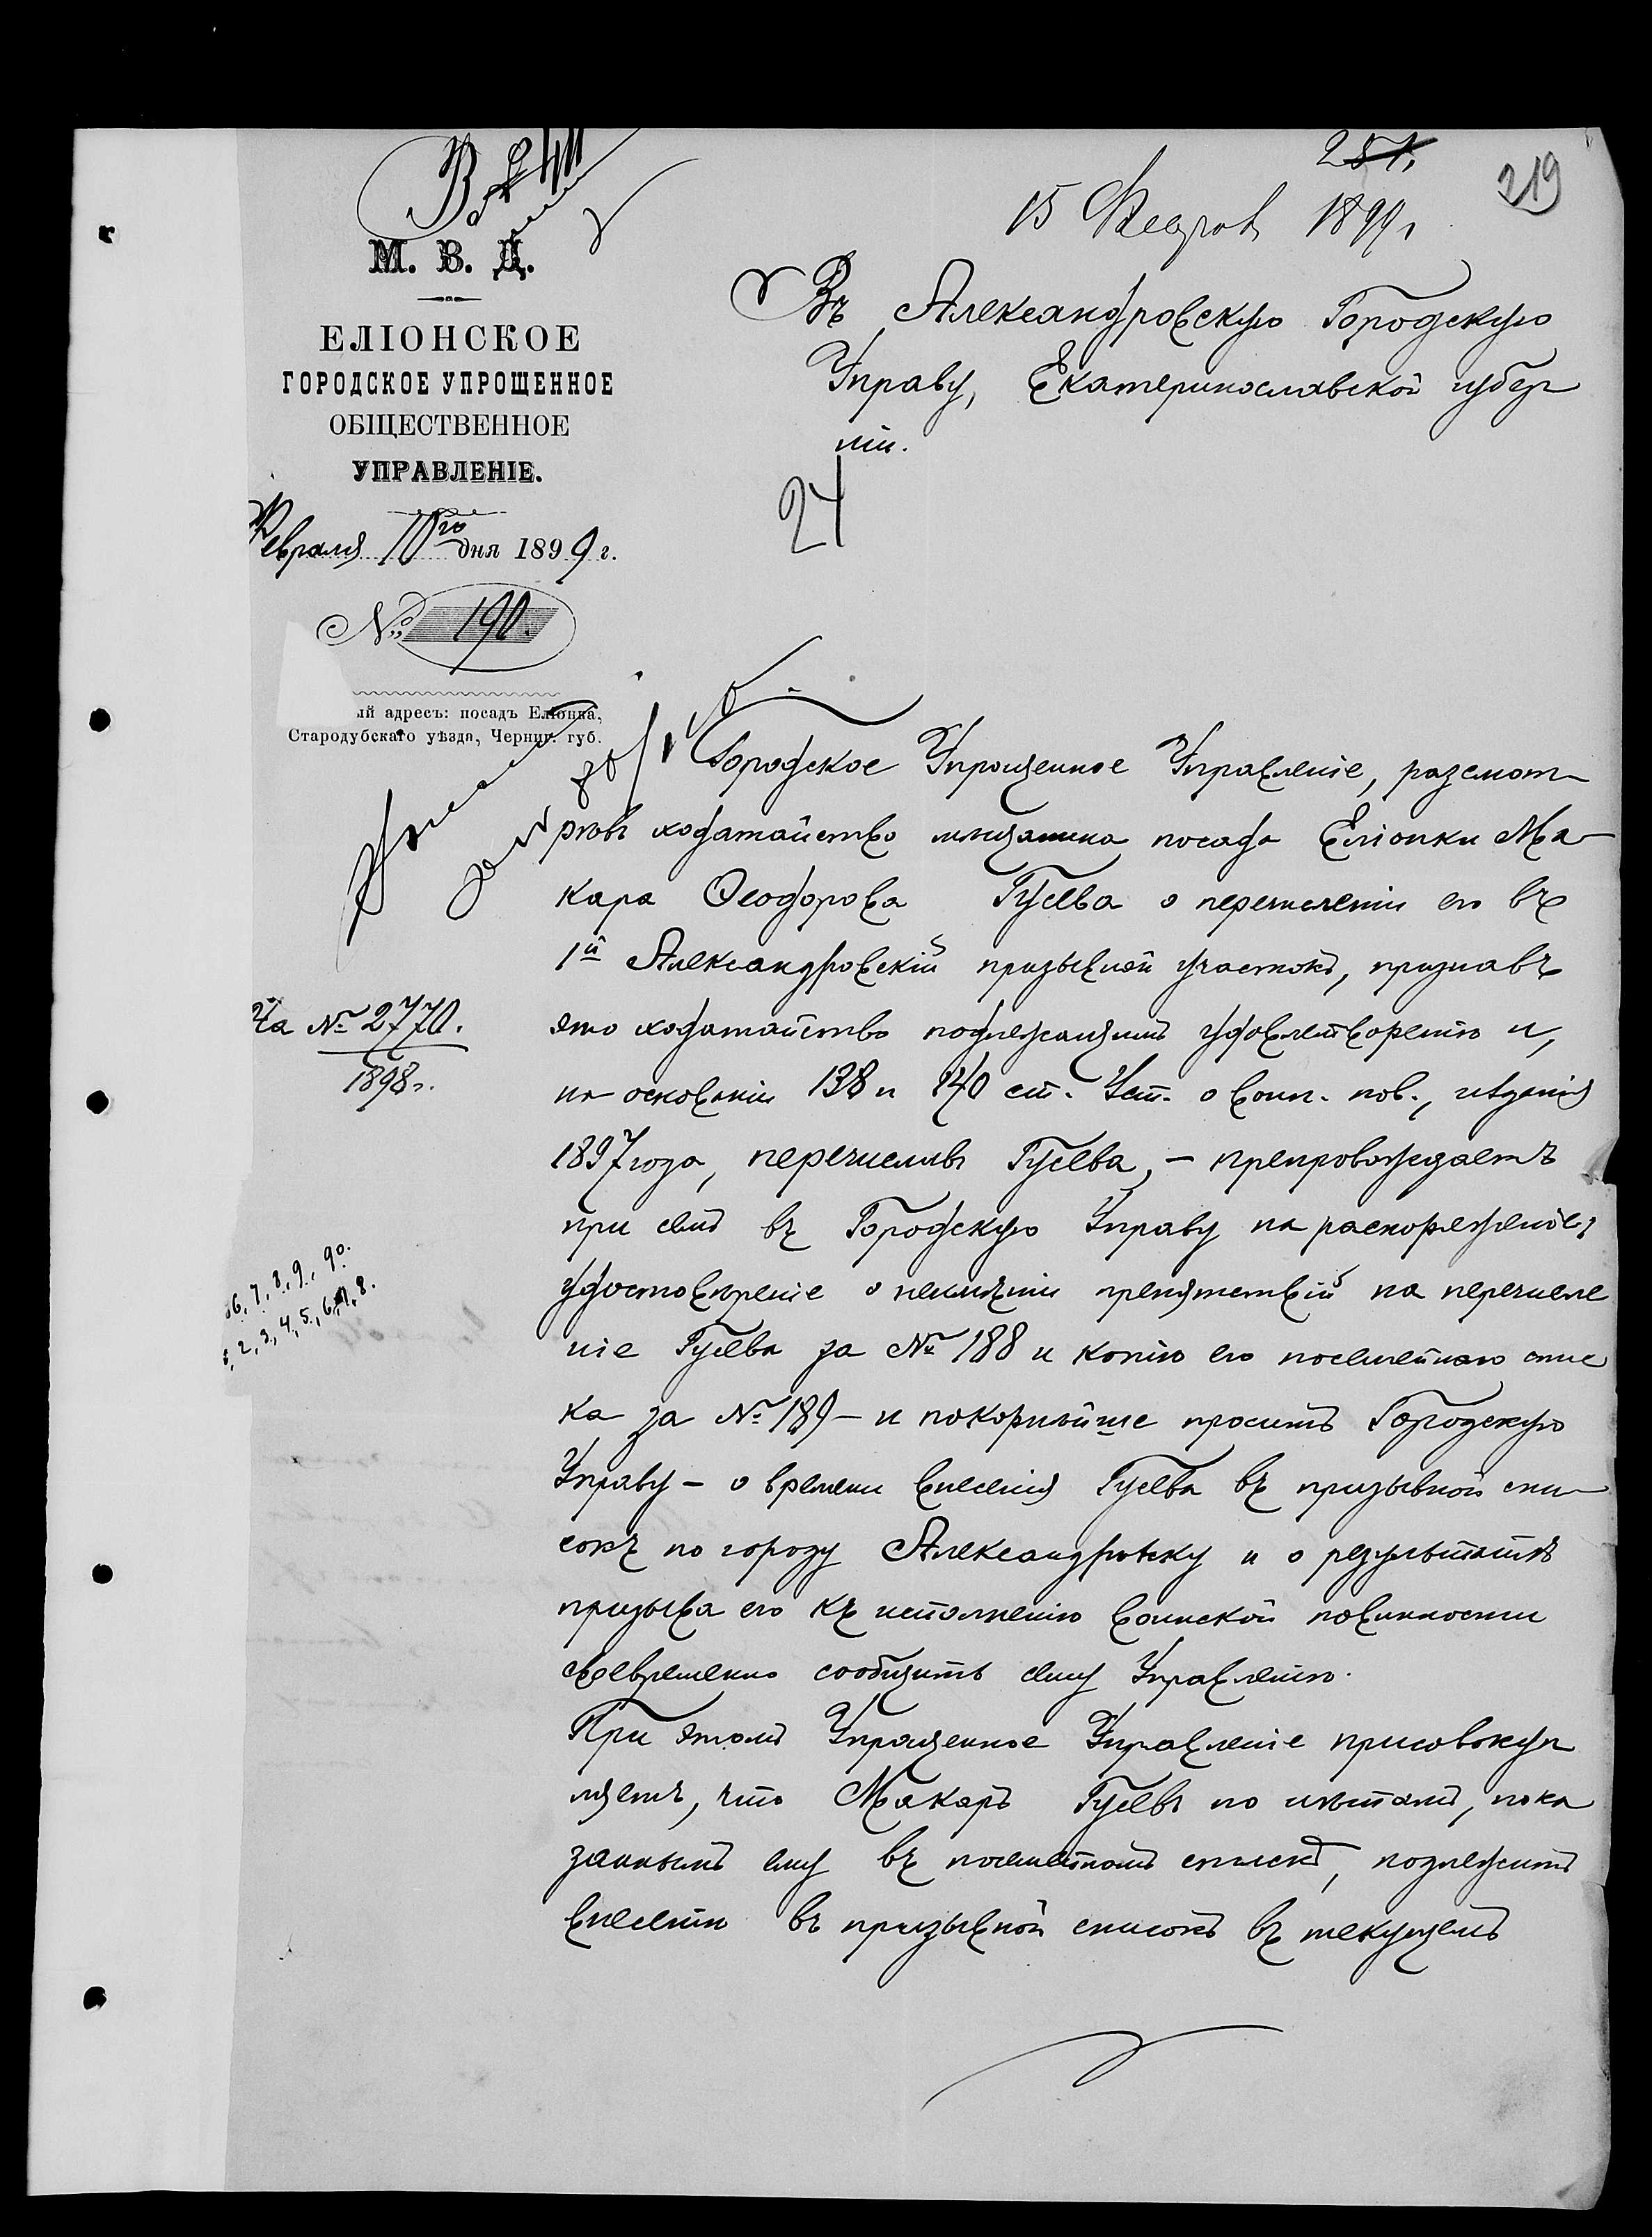 251.
219
15 Февраля 1899 г
М. В. Д.
ЕЛІОНСКОЕ
ГОРОДСКОЕ УПРОЩЕННОЕ
ОБЩЕСТВЕННОЕ
УПРАВЛЕНІЕ.
Февраля 10го дня 1899 г.
№ 190.
ій адресъ: посадъ Еліонка,
Стародубскаго уѣзда, Черниг. губ.
Въ Александровскую Городскую
Управу, Екатеринославской губер
ніи.
24
Городское Упрощенное Управленіе, разсмот-
рѣвъ ходатайство мѣщанина посада Еліонки Ма-
кара Ѳеодорова Гусева о перечисленіи его въ
1й Александровскій призывной участокъ, признавъ
На № 2770.
1898 г.
это ходатайство подлежащимъ удовлетворенію и,
на основаніи 138 и 140 ст. Уст. о воин. пов., изданія
1897 года, перечисливъ Гусева, – препровождаетъ
при семъ въ Городскую Управу на распоряженіе
удостовѣреніе о неимѣніи препятствій на перечисле
ніе Гусева за № 188 и копію его посемейнаго спис
ка за № 189 – и покорнѣйше проситъ Городскую
Управу – о времени внесенія Гусева въ призывной спи-
сокъ по городу Александровску и о результатѣ
призыва его къ исполненію воинской повинности
своевременно сообщить сему Управленію.
При этомъ Упрощенное Управленіе присовокуп
ляетъ, что Макаръ Гусевъ по лѣтамъ, пока
заннымъ ему въ посемейномъ спискѣ, подлежитъ
внесенію въ призывной списокъ въ текущемъ
6, 7, 8, 9, 90.
2, 3, 4, 5, 6, 7, 8.